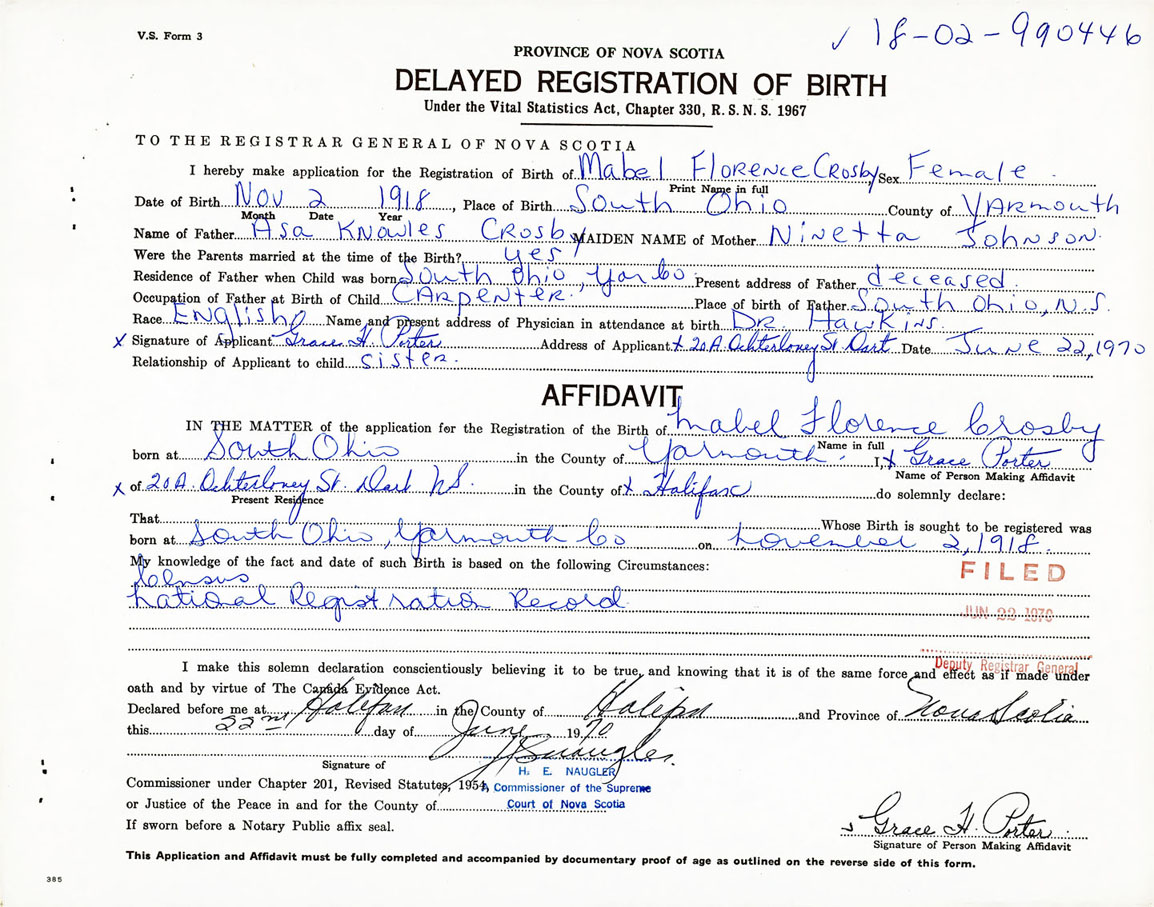 V.S. Form 3
✓ 18-02-990446
PROVINCE OF NOVA SCOTIA
DELAYED REGISTRATION OF BIRTH
Under the Vital Statistics Act, Chapter 330, R. S. N. S. 1967
TO THE REGISTRAR GENERAL OF NOVA SCOTIA
I hereby make application for the Registration of Birth of Mabel Florence Crosby, Sex Female
Print Name in full
Date of Birth Nov 2 1918, Place of Birth South Ohio County of Yarmouth
Month Date Year
Name of Father Asa Knowles Crosby MAIDEN NAME of Mother Ninetta Johnson.
Were the Parents married at the time of the Birth? yes
Residence of Father when Child was born South Ohio, Yar Co. Present address of Father deceased.
Occupation of Father at Birth of Child Carpenter. Place of birth of Father South Ohio, N.S.
Race English Name and present address of Physician in attendance at birth Dr Hawkins.
X Signature of Applicant Grace H. Porter Address of Applicant x 20A. Ochterloney St. Dart Date June 22, 1970
Relationship of Applicant to child sister.
AFFIDAVIT
IN THE MATTER of the application for the Registration of the Birth of Mabel Florence Crosby
Name in full
born at South Ohio in the County of Yarmouth. I, x Grace Porter
Name of Person Making Affidavit
x of 20A. Ochterloney St. Dart NS. in the County of x Halifax do solemnly declare:
Present Residence
That Whose Birth is sought to be registered was
born at South Ohio, Yarmouth Co on November 2, 1918.
My knowledge of the fact and date of such Birth is based on the following Circumstances:
Census
National Registration Record.
FILED
JUN 22 1970
Deputy Registrar General
I make this solemn declaration conscientiously believing it to be true, and knowing that it is of the same force and effect as if made under
oath and by virtue of The Canada Evidence Act.
Declared before me at Halifax in the County of Halifax and Province of Nova Scotia
this 22nd day of June 1970
H E Naugler.
Signature of
H. E. NAUGLER
Commissioner under Chapter 201, Revised Statutes, 1954, Commissioner of the Supreme
or Justice of the Peace in and for the County of Court of Nova Scotia
If sworn before a Notary Public affix seal.
Grace H. Porter
Signature of Person Making Affidavit
This Application and Affidavit must be fully completed and accompanied by documentary proof of age as outlined on the reverse side of this form.
385